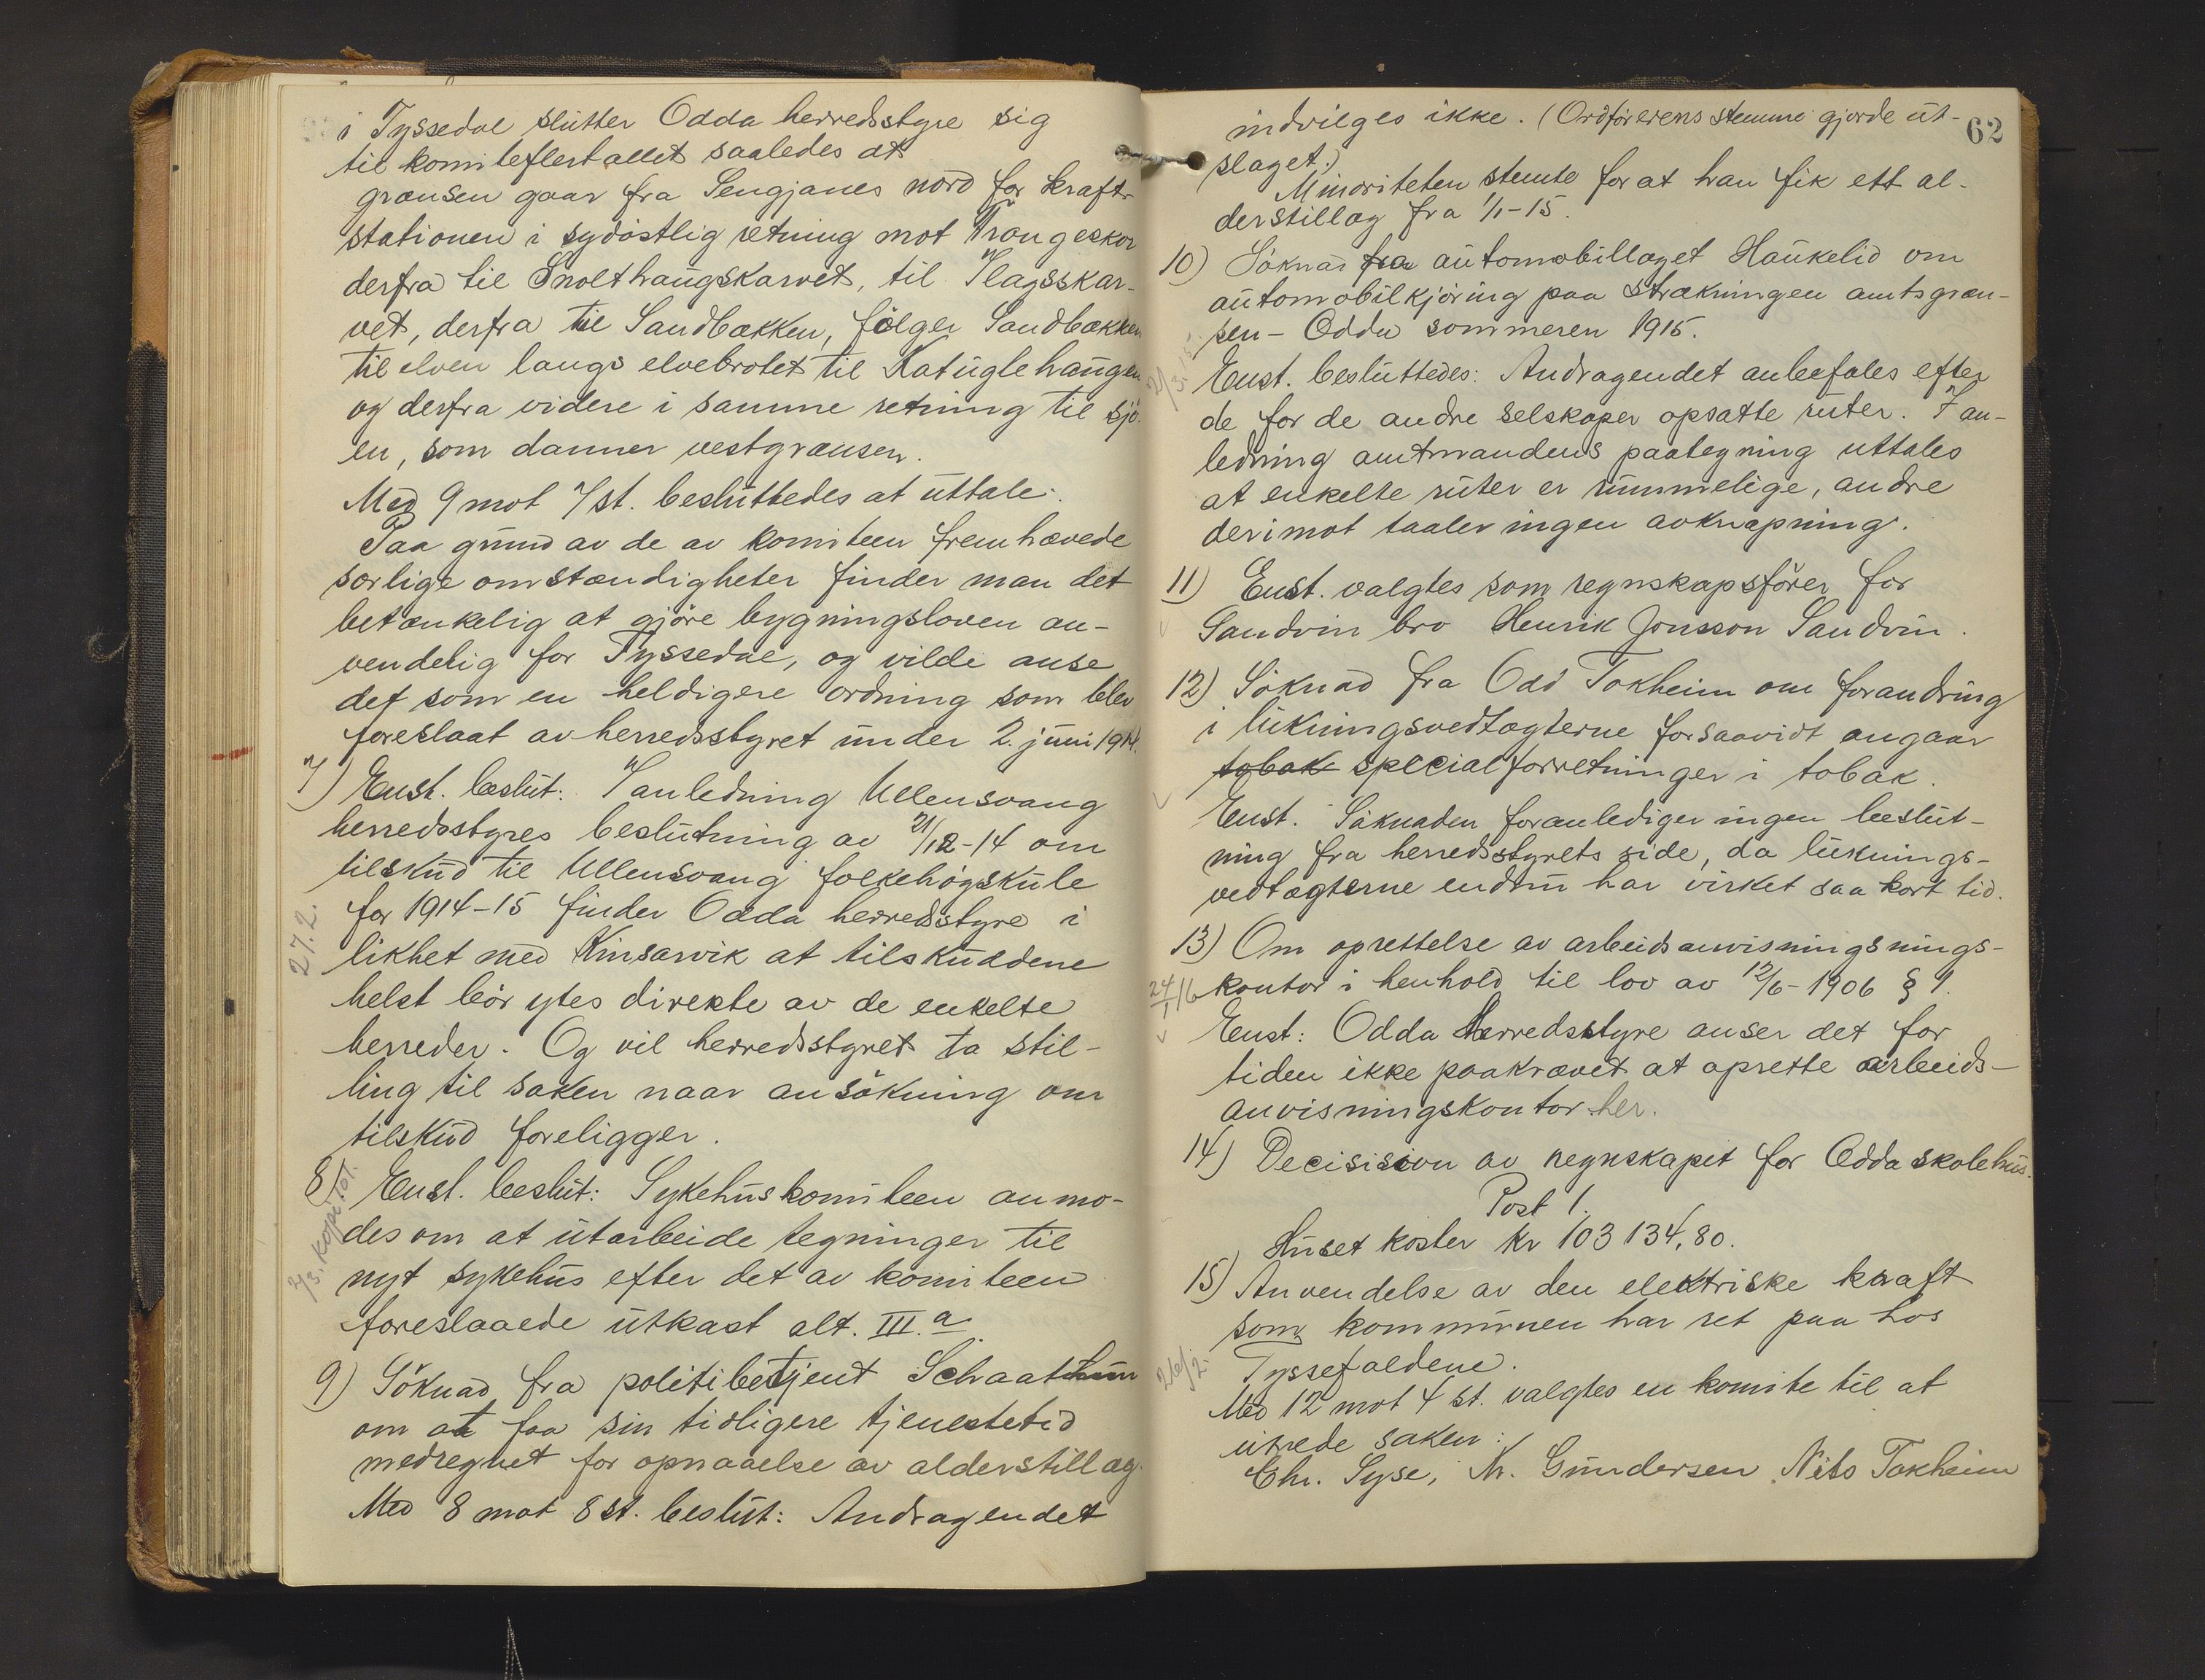 i Tyssedal slutter Odda herredsstyre sig
til komiteflertallet saaledes at
grænsen gaar fra Lengjanes nord for kraft-
stationen i sydöstlig retning mot Trongeskor
derfra til Snolthaugskarvet, til Flagsskar-
vet, derfra til Sandbækken, fölger Sandbækken
til elven langs elvebrotet til Katuglehaugen
og derfra videre i samme retning til sjö-
en, som danner vestgrænsen.
Med 9 mot 7 st. besluttedes at uttale:
Paa grund av de av komiteen fremhævede
særlige omstændigheter finder man det
betænkelig at gjöre bygningsloven an-
vendelig for Tyssedal, og vilde anse
det som en heldigere ordning som blev
foreslaat av herredsstyret under 2. juni 1914.
7) Enst. beslut: I anledning Ullensvang
herredsstyres beslutning av 21/12-14 om
tilskud til Ullensvang folkehögskule
for 1914-15 finder Odda herredsstyre i
27.2.
likhet med Kinsarvik at tilskuddene
helst bör ytes direkte av de enkelte
herreder. Og vil herredsstyret ta stil-
ling til saken naar ansökning om
tilskud foreligger.
8) Enst. beslut: Sykehuskomiteen anmo-
2/3. kopi tol.
des om at utarbeide tegninger til
nyt sykehus efter det av komiteen
foreslaaede utkast alt. III.a.
9) Söknad fra politibetjent Schaathun
om at faa sin tidligere tjenestetid
medregnet for opnaaelse av alderstillæg.
Med 8 mot 8 st. beslut: Andragendet
62
indvilges ikke. (Ordförerens stemme gjorde ut-
slaget.)
Minoriteten stemte for at han fik ett al-
derstillæg fra 1/1-15.
10) Söknad fra automobillaget Haukelid om
automobilkjöring paa strækningen amtsgræn-
sen - Odda sommeren 1915.
2/3.15
Enst. besluttedes: Andragendet anbefales efter
de for de andre selskaper opsatte ruter. I an-
ledning amtmandens paategning uttales
at enkelte ruter er rummelige, andre
derimot taaler ingen avknapning.
11) Enst. valgtes som regnskapsförer for
Sandvin bro Henrik Jonsson Sandvin.
12) Söknad fra Odd Tokheim om forandring
i lukningsvedtægterne forsaavidt angaar
tobak specialforretninger i tobak.
Enst. Söknaden foranlediger ingen beslut-
ning fra herredsstyrets side, da luknings-
vedtægterne endnu har virket saa kort tid.
13) Om oprettelse av arbeidsanvisningsnings-
24/1 16
kontor i henhold til lov av 12/6-1906 § 1.
Enst: Odda Herredsstyre anser det for
tiden ikke paakrævet at oprette arbeids-
anvisningskontor her.
14) Decisision av regnskapet for Odda skolehus.
Post 1.
Huset koster kr 103 134,80.
15) Anvendelse av den elektriske kraft
som kommunen har ret paa hos
26/2.
Tyssefaldene.
Med 12 mot 4 st. valgtes en komite til at
utrede saken:
Chr. Syse, Kr. Gundersen, Nils Tokheim